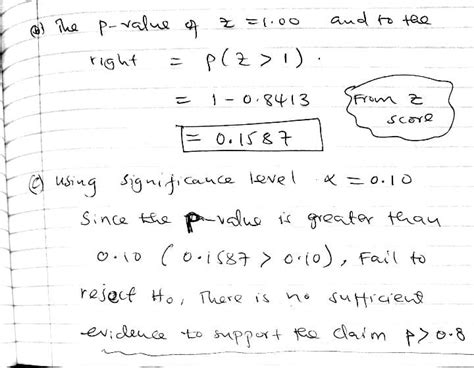 (b) The p-value of z = 1.00 and to the
right = P(z > 1).
= 1 - 0.8413
From z
score
= 0.1587
(c) using significance level α = 0.10
Since the p-value is greater than
0.10 (0.1587 > 0.10), Fail to
reject H₀, There is no sufficient
evidence to support the claim p > 0.8